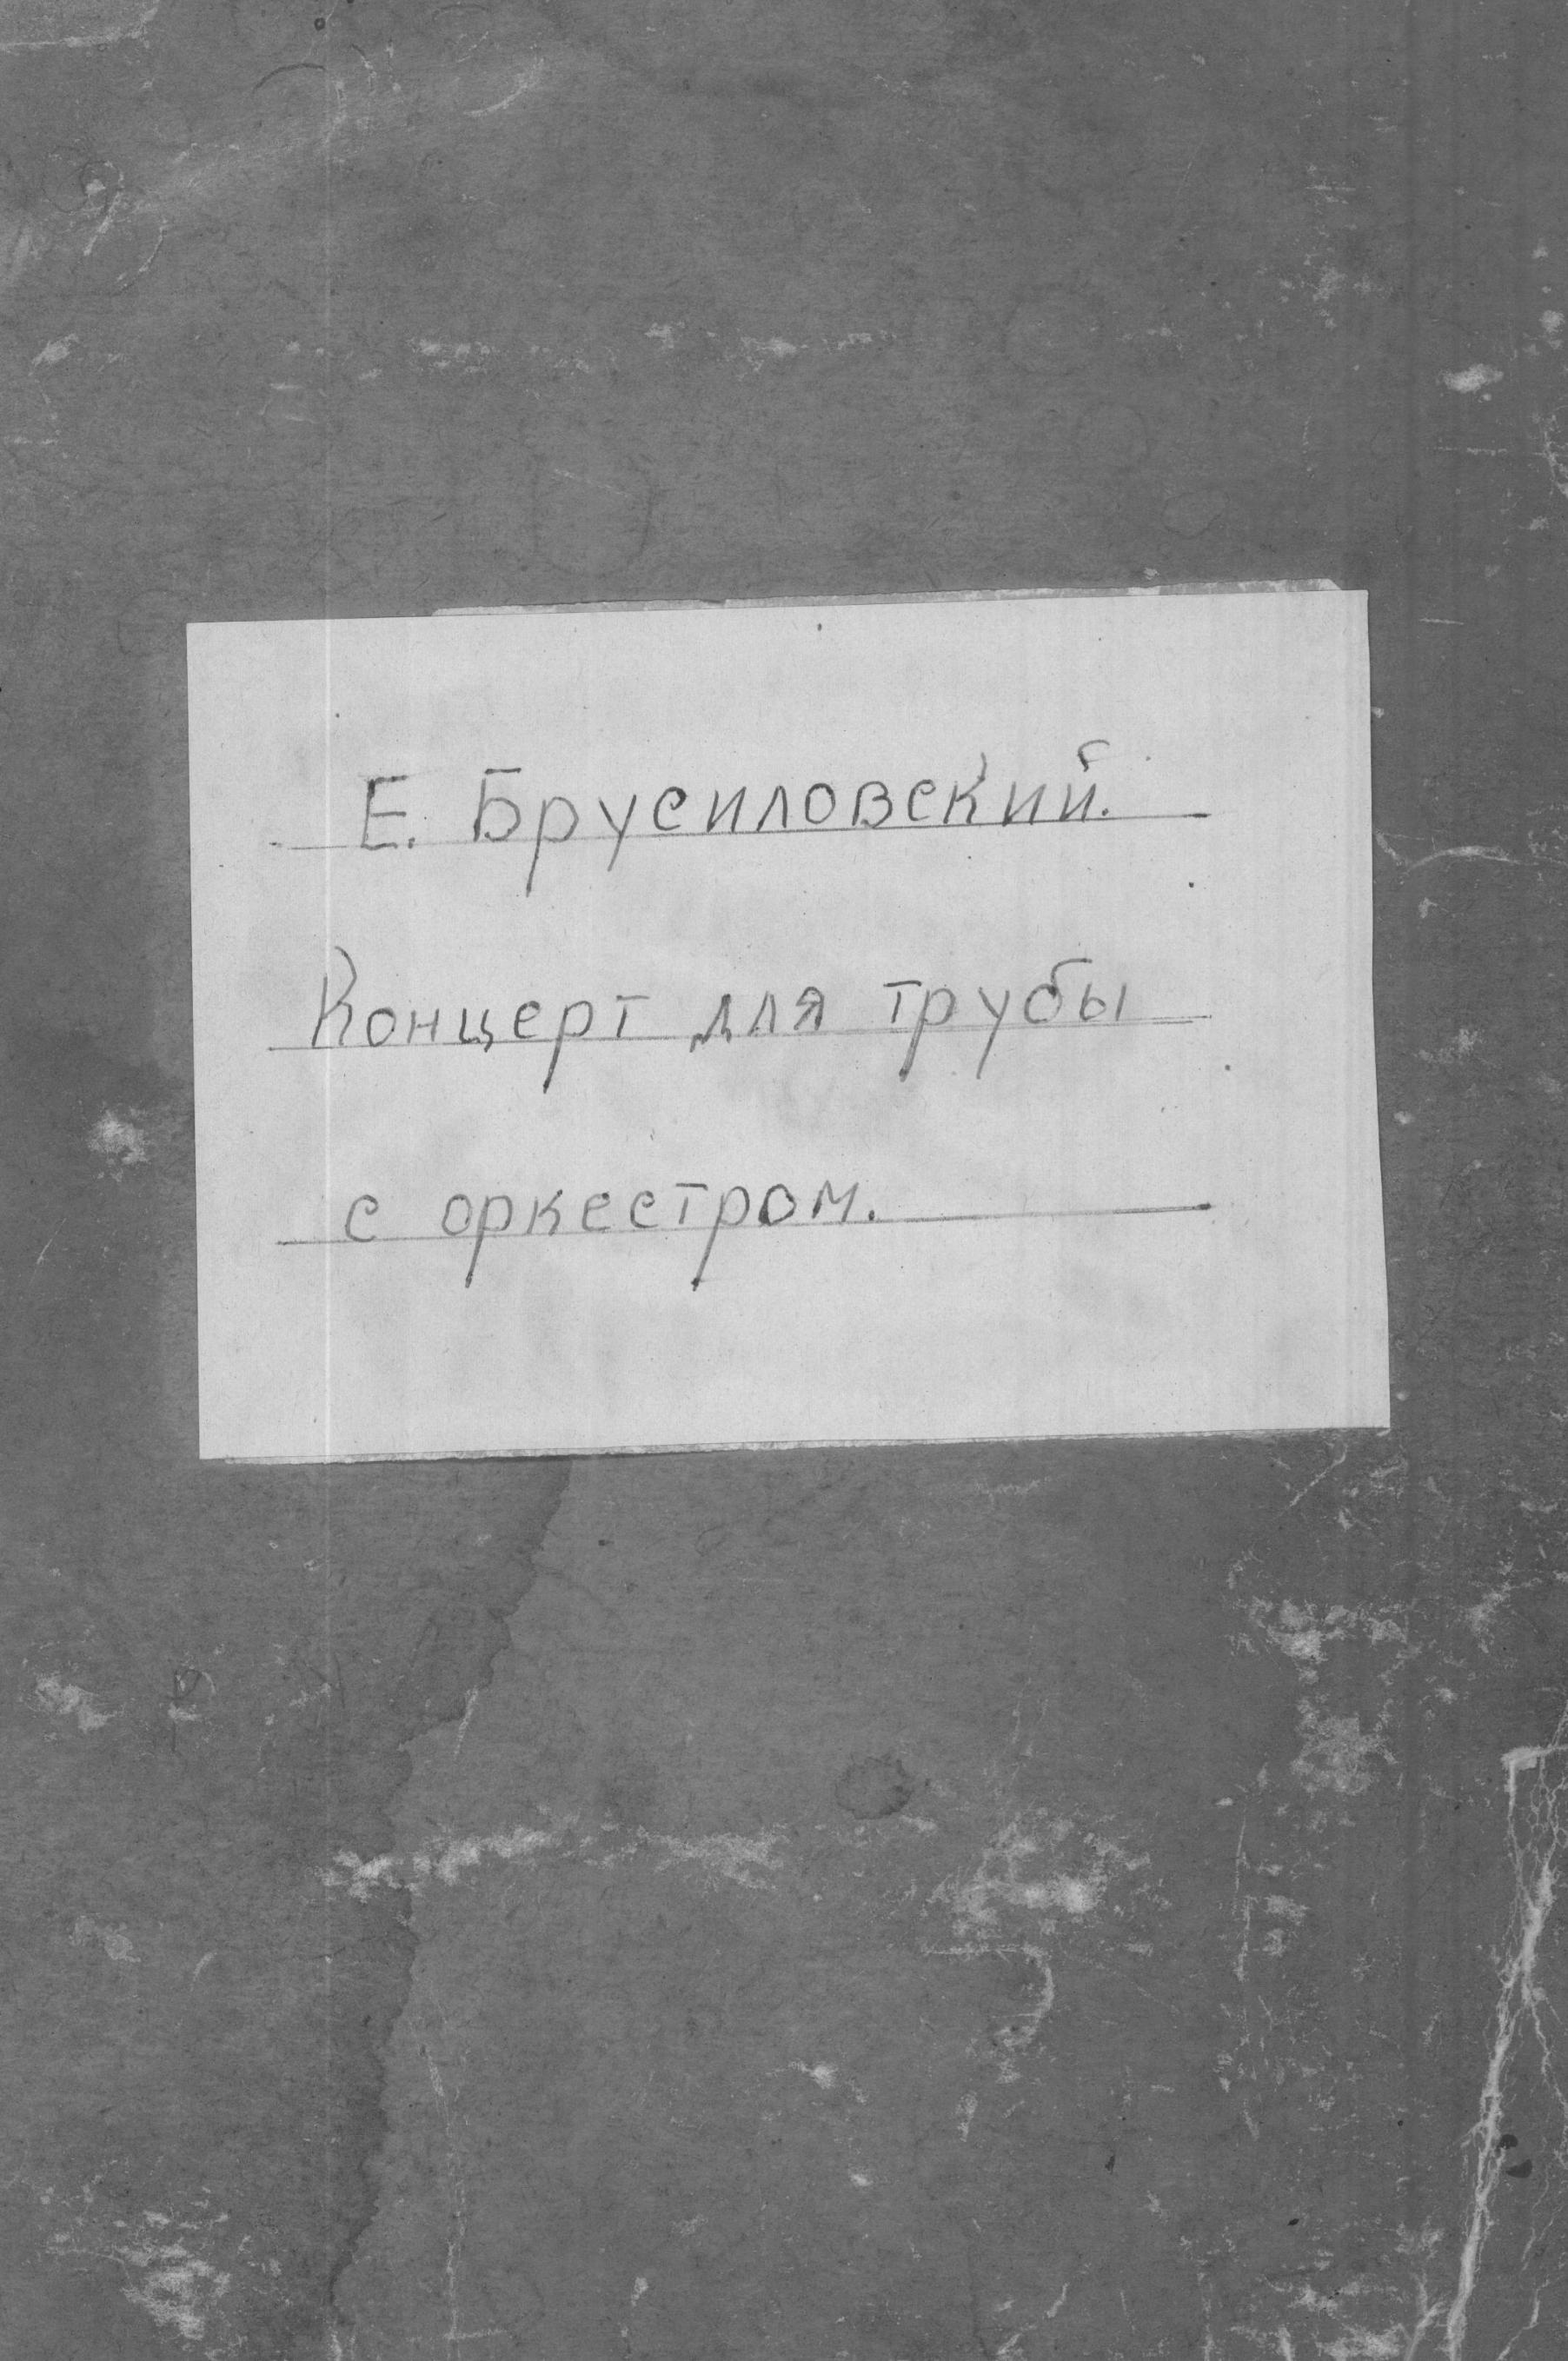 Е. Брусиловский.
Концерт для трубы
с оркестром.